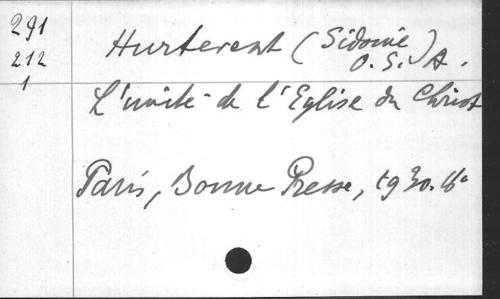 291
212
1
Hurterent (Sidonie)
O. S. A.
L'unité de l'Eglise du Christ
Paris, Bonne Presse, 1930. 8°